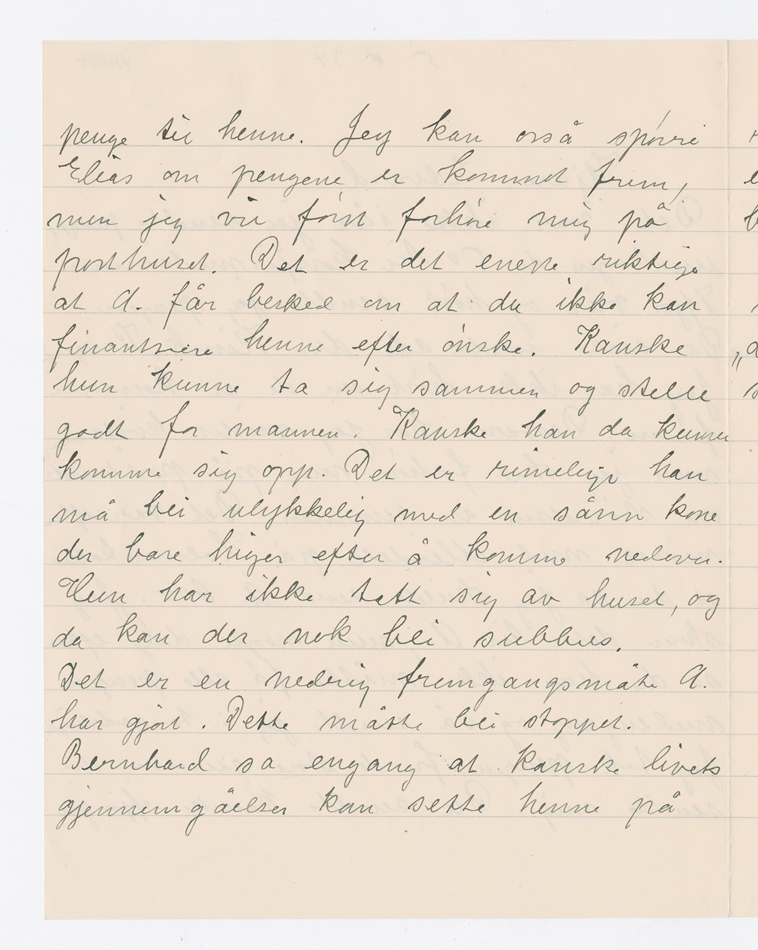 penge til henne. Jeg kan også spørre
Elias om pengene er kommet frem,
men jeg vil først forhøre mig på
posthuset. Det er det eneste riktige
at A. får besked om at du ikke kan
finantsiere henne efter ønske. Kanske
hun kunne ta sig sammen og stelle
godt for mannen. Kanske han da kunne
komme sig opp. Det er rimelig han
må bli ulykkelig med en sånn kone
der bare higer efter å komme nedover.
Hun har ikke tatt sig av huset, og
da kan der nok bli subbus.
Det er en nedrig fremgangsmåte A.
har gjort. Dette måtte bli stoppet.
Bernhard sa engang at kanske livets
gjennemgåelser kan sette henne på